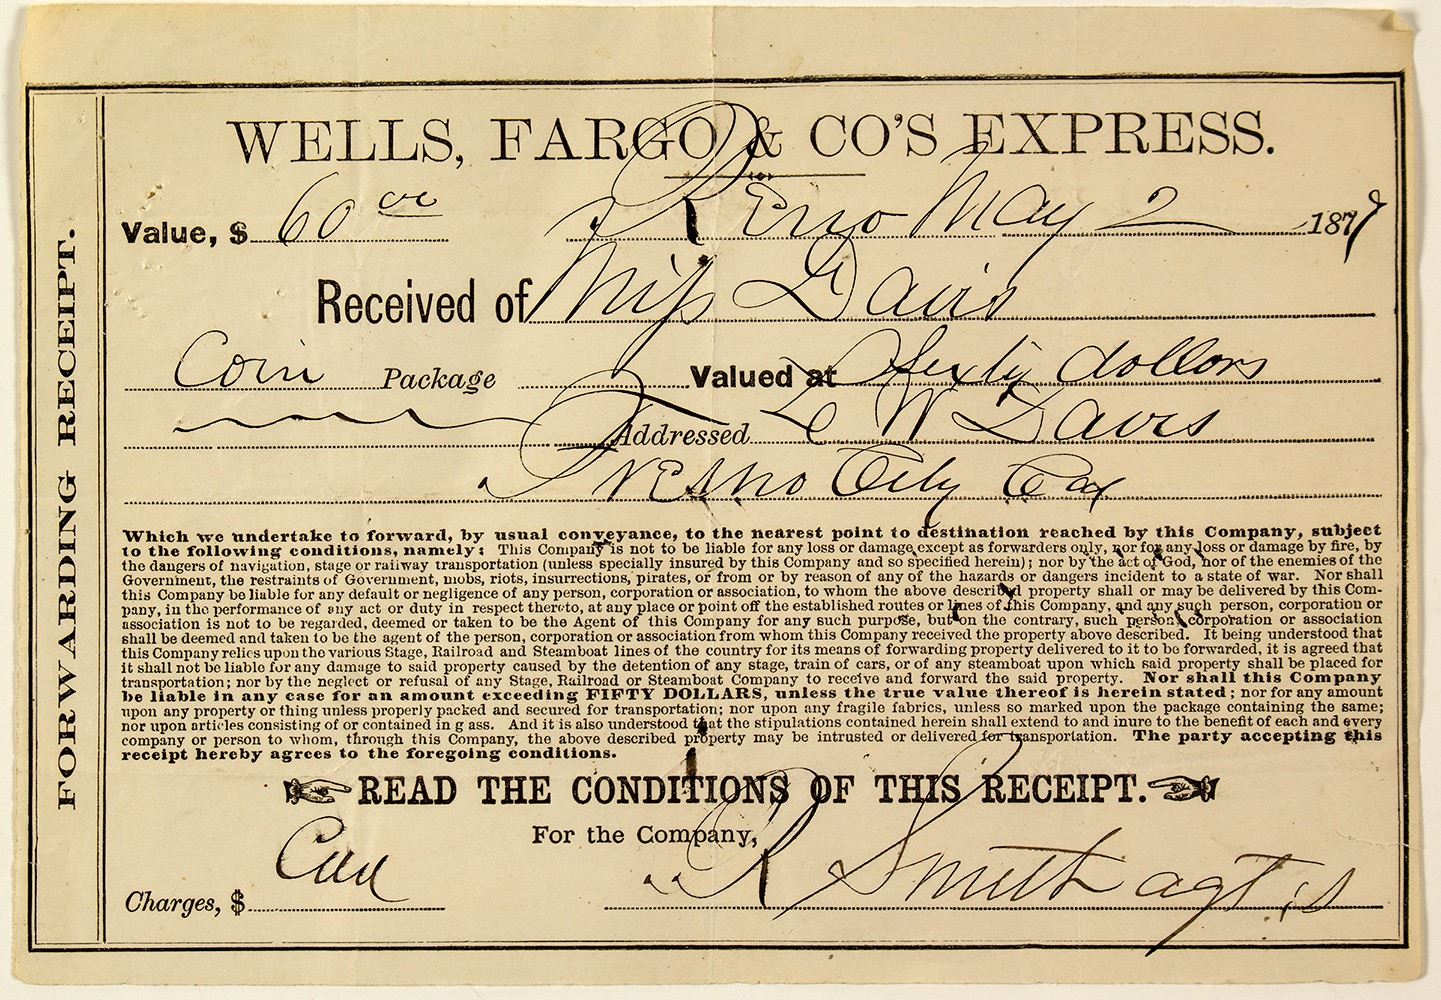 WELLS, FARGO & CO'S EXPRESS.
Value, $ 60 00 Reno May 2 1877
Received of Miss Davis
Coin Package Valued at Sixty dollars
Addressed L W Davis
Fresno City Cal
FORWARDING RECEIPT.
Which we undertake to forward, by usual conveyance, to the nearest point to destination reached by this Company, subject
to the following conditions, namely: This Company is not to be liable for any loss or damage, except as forwarders only, nor for any loss or damage by fire, by
the dangers of navigation, stage or railway transportation (unless specially insured by this Company and so specified herein); nor by the act of God, nor of the enemies of the
Government, the restraints of Government, mobs, riots, insurrections, pirates, or from or by reason of any of the hazards or dangers incident to a state of war. Nor shall
this Company be liable for any default or negligence of any person, corporation or association, to whom the above described property shall or may be delivered by this Com-
pany, in the performance of any act or duty in respect thereto, at any place or point off the established routes or lines of this Company, and any such person, corporation or
association is not to be regarded, deemed or taken to be the Agent of this Company for any such purpose, but on the contrary, such person, corporation or association
shall be deemed and taken to be the agent of the person, corporation or association from whom this Company received the property above described. It being understood that
this Company relies upon the various Stage, Railroad and Steamboat lines of the country for its means of forwarding property delivered to it to be forwarded, it is agreed that
it shall not be liable for any damage to said property caused by the detention of any stage, train of cars, or of any steamboat upon which said property shall be placed for
transportation; nor by the neglect or refusal of any Stage, Railroad or Steamboat Company to receive and forward the said property. Nor shall this Company
be liable in any case for an amount exceeding FIFTY DOLLARS, unless the true value thereof is herein stated; nor for any amount
upon any property or thing unless properly packed and secured for transportation; nor upon any fragile fabrics, unless so marked upon the package containing the same;
nor upon articles consisting of or contained in g ass. And it is also understood that the stipulations contained herein shall extend to and inure to the benefit of each and every
company or person to whom, through this Company, the above described property may be intrusted or delivered for transportation. The party accepting this
receipt hereby agrees to the foregoing conditions.
READ THE CONDITIONS OF THIS RECEIPT.
For the Company,
Charges, $ R Smith agt